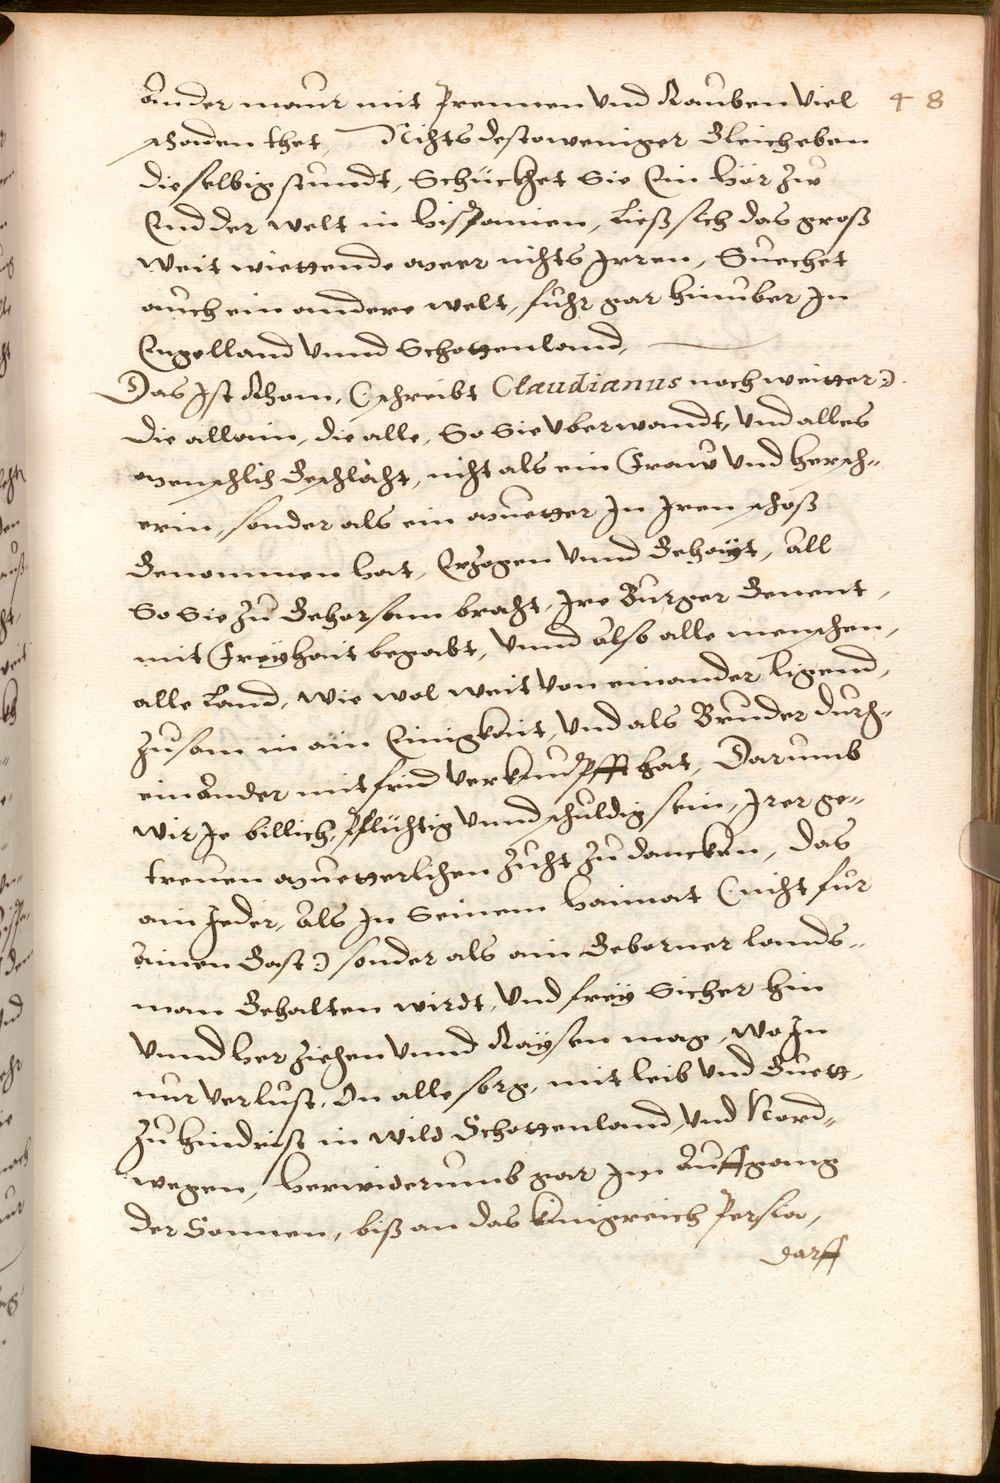 ander maur mit Prennen Vnd Rauben Viel 48
schaden thet, Nichts destoweniger Gleich eben
die selbig stundt, Schückhet Sie Ein hör zw
End der welt in hispanien, Ließ sich das groß
weit wiettende meer nichts Jrren, Suechet
auch ein andere welt, fuhr gar hinuber Jn
Engelland Vnnd Schottenland,
Das Jst Rhom, (schreibt Claudianus noch weitter:)
die allain, die alle, So Sie Vberwandt, Vnd alles
menschlich Geschlächt, nicht als ein Fraw Vnd hersch„
erin, sonder als ein muetter Jn Jren schoß
Genommen hat, Erzogen Vnnd Gehayt, all
So Sie Zu Gehorsam bracht, Jre Burger Genent,
mit Freyhait begabt, Vnnd also alle menschen,
alle Land, wie wol weit Von einander ligend,
Zusam in ain Einigkait, Vnd als Bruder durch„
einander mit frid Verknüpfft hat, Darumb
wir Je billich, Pflichtig Vnnd schuldig sein, Jrer ge„
treuen muetterlichen Zucht Zu dancken, das
ain Jeder, als Jn Seinem haimat (nicht für
ainen Gast:) sonder als ain Geborner lands„
man Gehalten wirdt, Vnd frey Sicher hin
Vnnd her Ziehen Vnnd Raysen mag, wo Jn
nur Verlust, On alle sorg, mit leib Vnd Guett,
Zu hindrist in wild Schottenland, Vnd Nord„
wegen, herwiderumb gar Jm auffgang
der Sonnen, biß an das künigreich Persia,
darff